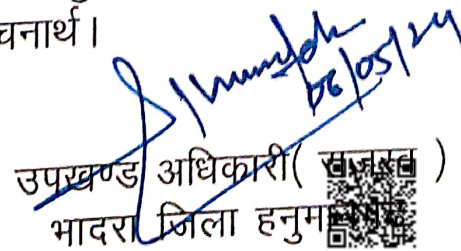 चनार्थ।
06/05/24
उपखण्ड अधिकारी( राजस्व )
भादरा जिला हनुमानगढ़